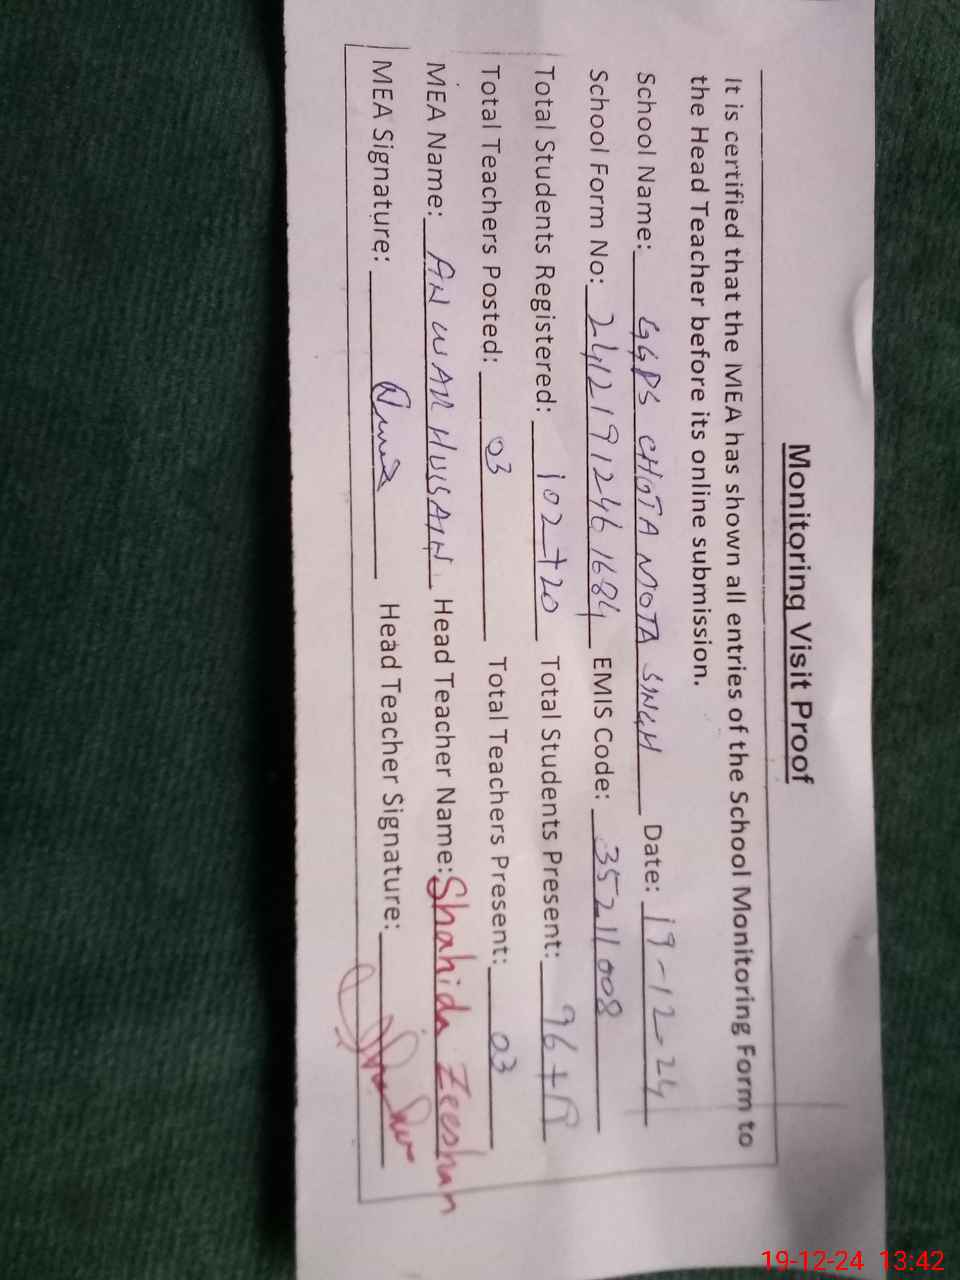 Monitoring Visit Proof
It is certified that the MEA has shown all entries of the School Monitoring Form to
the Head Teacher before its online submission.
School Name: GGPS CHOTA MOTA SINGH Date: 19-12-24
School Form No: 24121912461684 EMIS Code: 35211008
Total Students Registered: 102+20 Total Students Present: 96+
Total Teachers Posted: 03 Total Teachers Present: 03
MEA Name: ANWAR HUSSAIN Head Teacher Name: Shahida Zeeshan
MEA Signature: Head Teacher Signature:
19-12-24 13:42